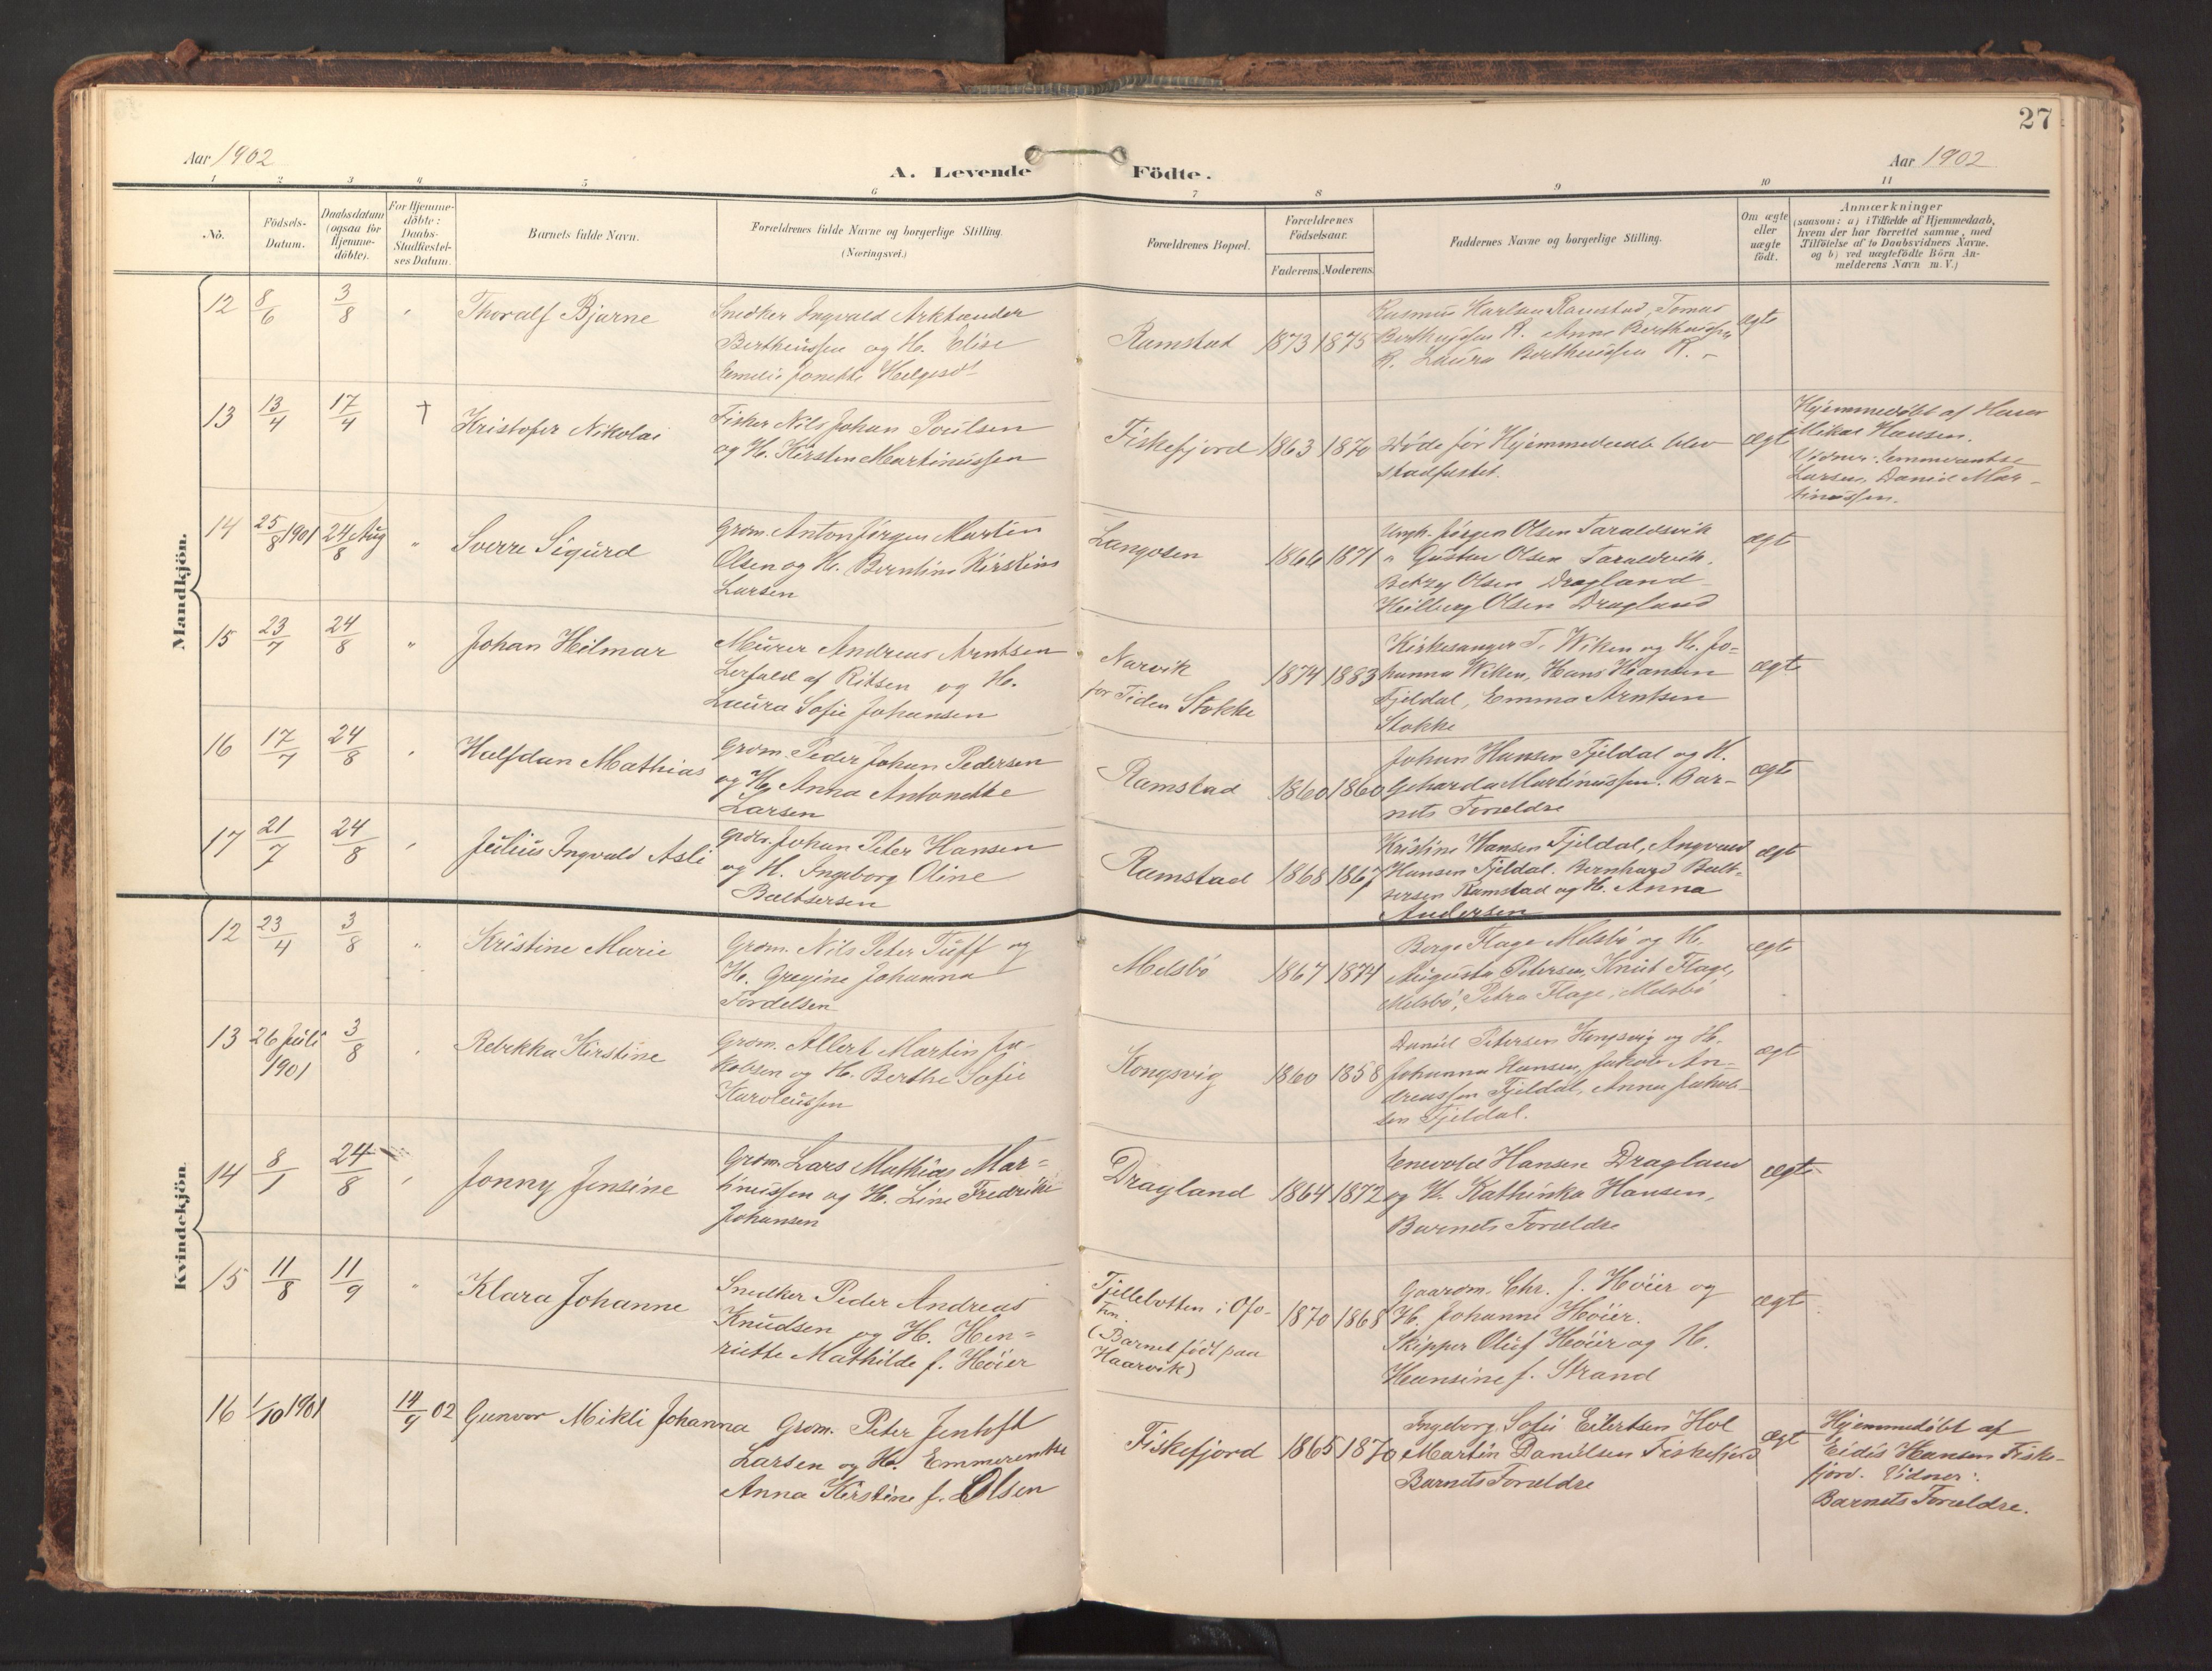 27
Aar 1902
A. Levende Födte.
Aar 1902
1 2 3 4 5 6 7 8 9 10 11
No.
Födsels-Datum.
Daabsdatum (ogsaa for Hjemme-döbte).
For Hjemme-döbte: Daabs-Stadfæstel-ses Datum.
Barnets fulde Navn.
Forældrenes fulde Navne og borgerlige Stilling.
(Næringsvei.)
Forældrenes Bopæl.
Forældrenes Födselsaar.
Faderens. Moderens.
Faddernes Navne og borgerlige Stilling.
Om ægte eller uægte födt.
Anmærkninger
(saasom: a) i Tilfælde af Hjemmedaab,
hvem der har forrettet samme, med
Tilföielse af to Daabsvidners Navne.
og b) ved uægtefödte Börn An-
melderens Navn m. V.)
Mandkjön.
12 8/6 3/8 Thoralf Bjarne
Snedker Ingvald
Bertheussen og H. Elise
Emelie Jonette Helgesdt
Ramstad 1873 1875
Rasmus Karlsen Ramstad, Tomas
Bertheussen R. Anna Bertheussen
R. Laura Bertheussen R. -
ægte
13 13/4 17/4 † Kristofer Nikolai
Fisker Nils Johan Poulsen
og H. Kirsten Martinussen
Fiskefjord 1863 1870
Døde før Hjemmedaab blev
stadfæstet.
ægte
Hjemmedøbt af Hans
Mikal Hansen.
Vidner: Emmerentse
Larsen, Daniel Mar-
tinussen.
14 25/8 1901 24/8 Aug " Sverre Sigurd
Grdm. Anton Jørgen Martin
Olsen og H. Berntine Kirstine
Larsen
Langosen 1866 1871
Ungk. Jørgen Olsen Taraldsvik
" Gustav Olsen Taraldsvik.
Betzy Olsen Dragland
Olsen Dragland
ægte
15 23/7 24/8 " Johan Hilmar
Murer Andreas Arntsen
Lerfald af Ritsen og H.
Laura Sofie Johansen
Narvik
for Tiden Stokke
1874 1883
Kirkesanger T. Wiken og H. Jo-
hanna Wiken, Hans Hansen
Fjeldal, Emma Arntsen
Stokke
ægte
16 17/7 24/8 Halfdan Mathias
Grdm. Peder Johan Pedersen
og H. Anna Antonette
Larsen
Ramstad 1860 1860
Johan Hansen Fjeldal og H.
Geharda Martinussen. Bar-
nets Forældre
ægte
17 21/7 24/8 Julius Ingvald Asli
Johan Peter Hansen
og H. Ingeborg Oline
Baltsersen
Ramstad 1868 1867
Kristine Hansen Fjeldal, Angvald
Hansen Fjeldal. Bernhard Balt-
sersen Ramstad og H. Anna
Andersen
ægte
Kvindekjön.
12 23/4 3/8 " Kristine Marie
Grdm. Nils Peter Tuff og
H. Gregine Johanna
Tordelsen
Melsbö 1867 1874
Berge Flage Melsbö og H.
Augusta Petersen, Knut Flage,
Melsbö, Petra Flage, Melsbö
ægte
13 26 Juli 1901 3/8 Rebekka Kirstine
Grdm. Allert Martin Ja-
kobsen og H. Berthe Sofie
Karoleussen
Kongsvig 1860 1858
Daniel Petersen Kongsvig og H.
Johanna Hansen, Jakob An-
dreassen Fjeldal, Anna Jakob-
sen Fjeldal.
ægte
14 8/1 24/8 Jonny Jensine
Grdm. Lars Mathias Mar-
tinussen og H. Line Fredrikke
Johansen
Dragland 1864 1872
Enevold Hansen Dragland
og H. Kathinka Hansen,
Barnets Forældre
ægte
15 11/8 11/9 " Klara Johanne
Snedker Peder Andreas
Knudsen og H. Hen-
riette Mathilde f. Høier
Fjellebotten i Ofo-
ten.
(Barnet født paa
Haarvik)
1870 1868
Gaardm. Chr. J. Høier og
H. Johanne Høier.
Skipper Oluf Høier og H.
Hansine f. Strand
ægte
16 1/10 1901 14/9 02 Gunvor Mikli Johanna
Grdm. Peter Jentoft
Larsen og H. Emmerentse
Anna Kirstine f. Olsen
Fiskefjord 1865 1870
Ingeborg Sofie Eilertsen Hol
Martin Danielsen Fiskefjord
Barnets Forældre
ægte
Hjemmedøbt af
Eidis Hansen Fiske-
fjord. Vidner:
Barnets Forældre.